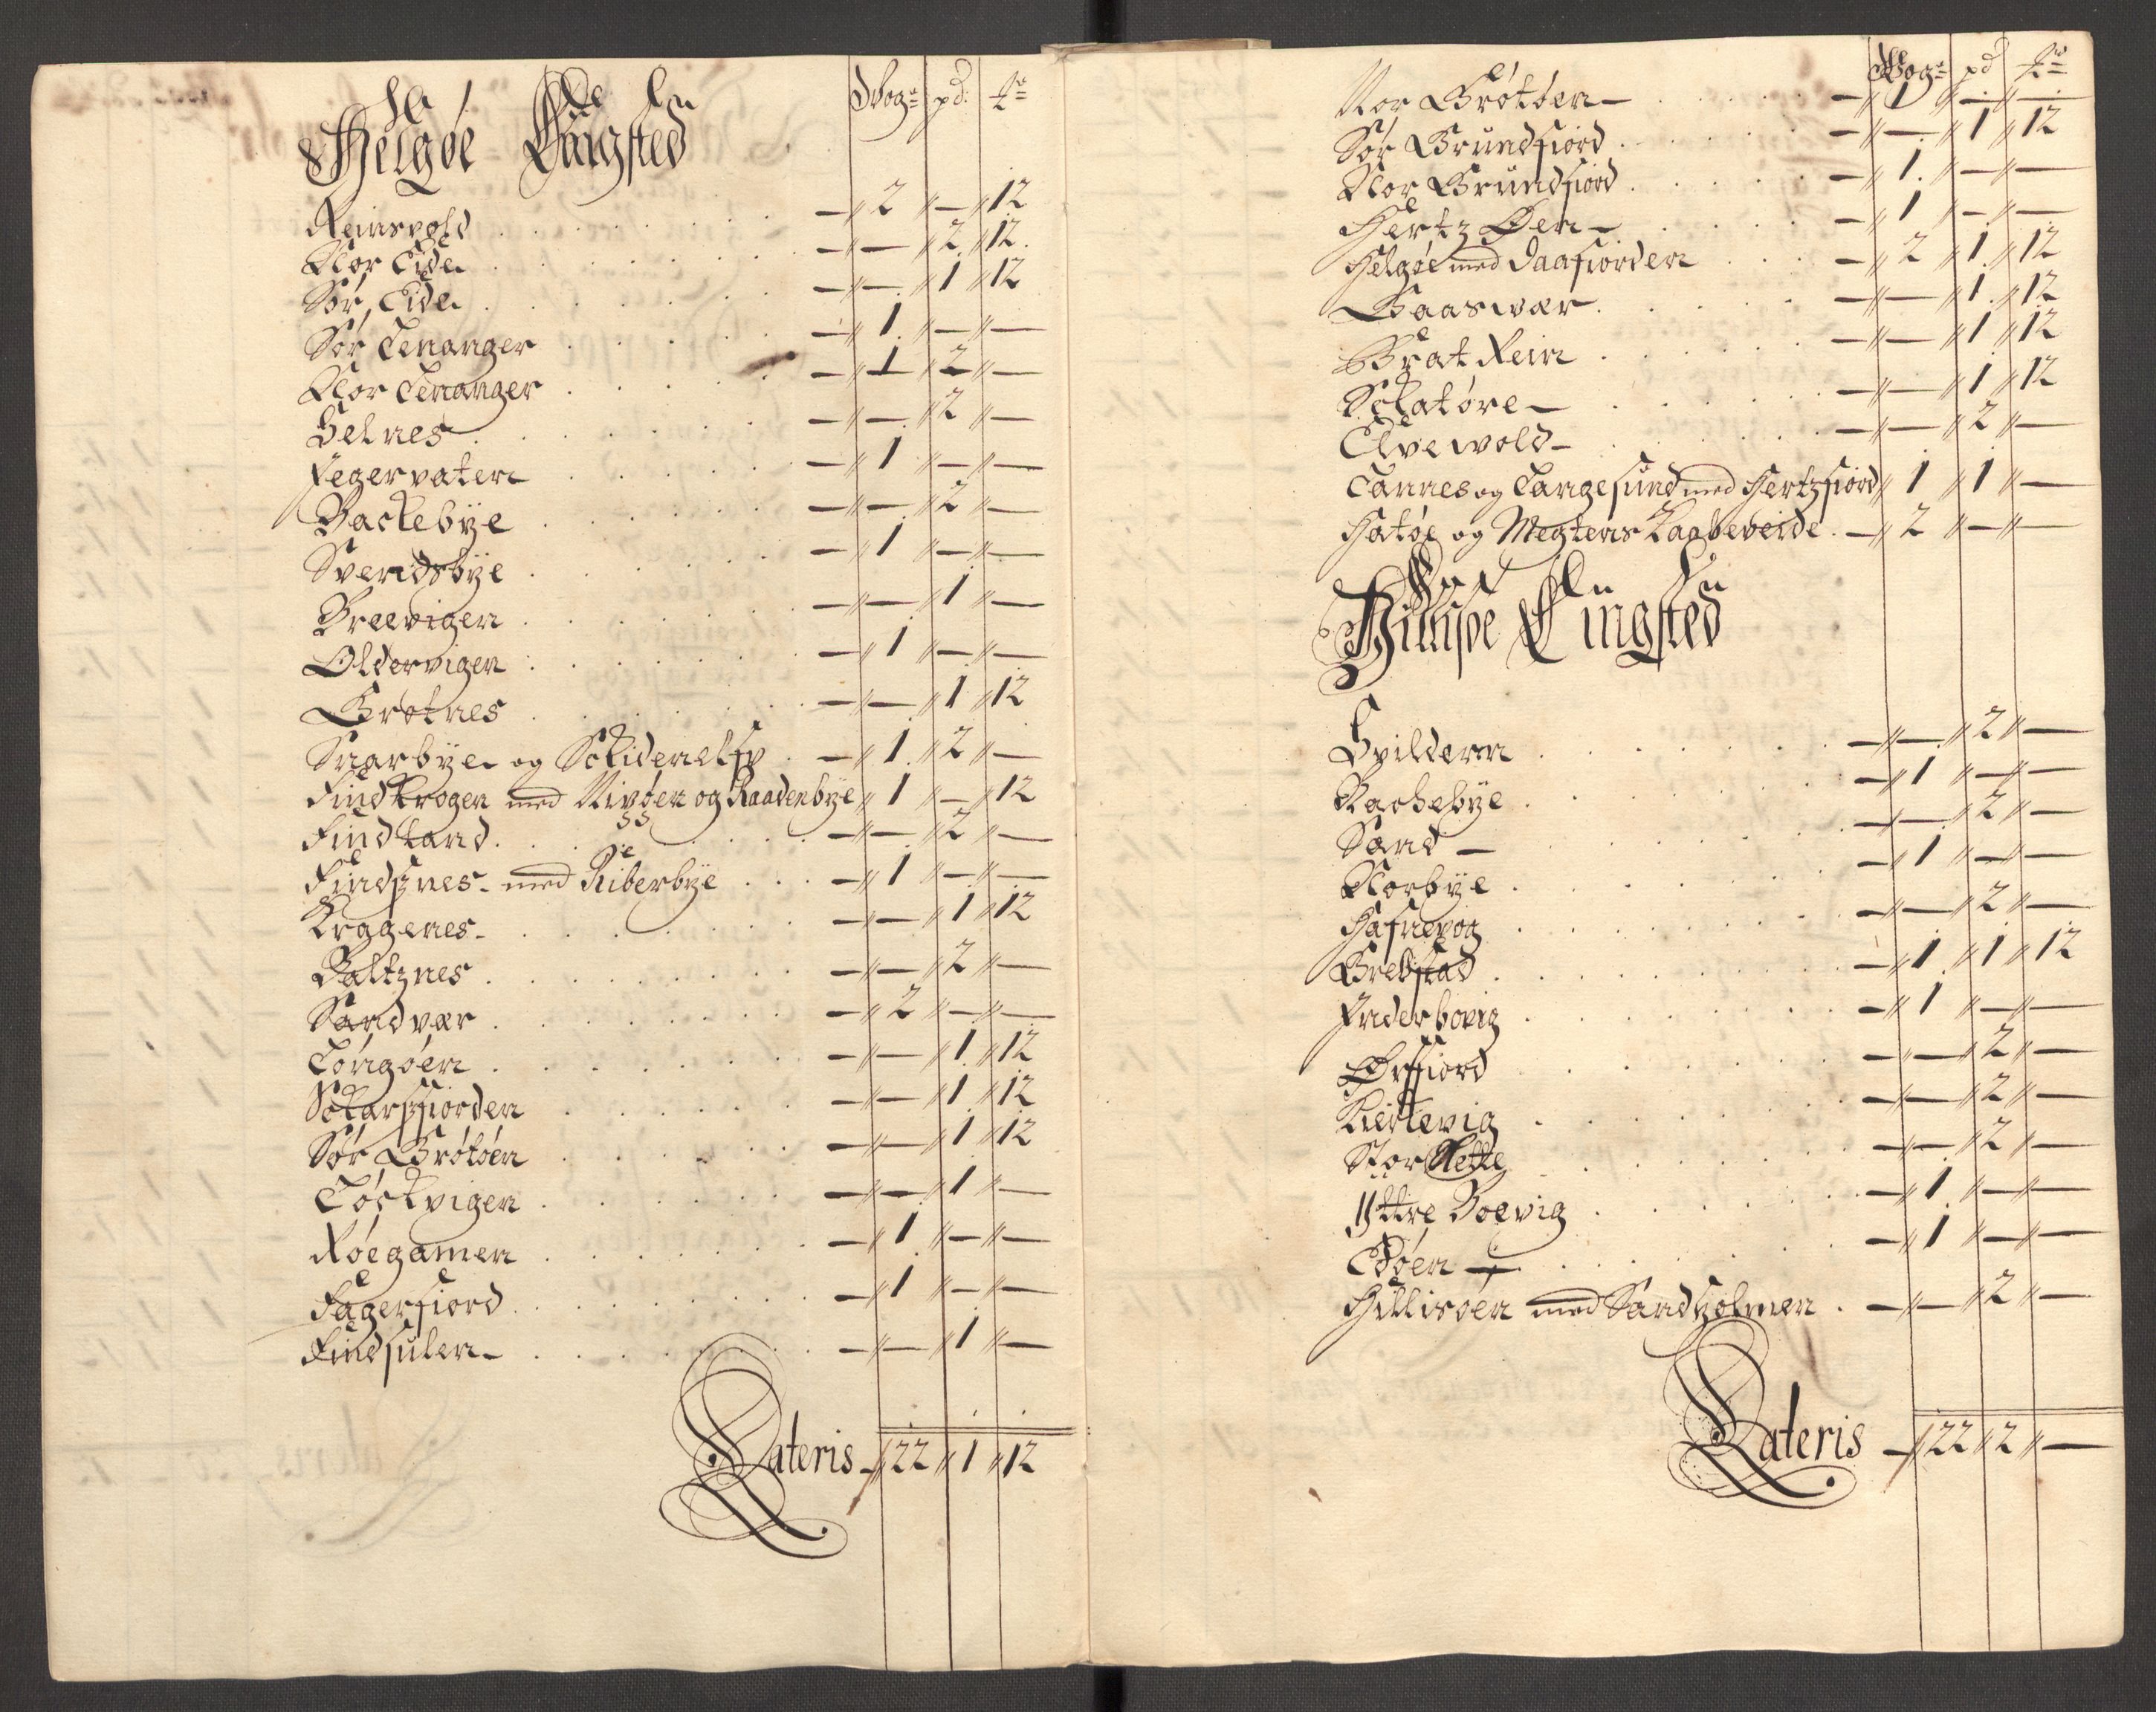 Helgøe Tingsted
Wog: pd: 
Reinsvold . . . — 2 — 12
Nor Eide . . . — — 2 12
Sør Eide . . . — — 1 12
Sør Lenanger . . . — 1 — —
Nor Lenanger . . . — 1 2 —
Helnes . . . — — 2 —
Jegervaten . . . — 1 — —
Backebye . . . — — 2 —
Svendsbye . . . — 1 — —
Breevigen . . . — — 1 —
Oldervigen . . . — 1 — —
Grotnes . . . — — 1 12
Snarbye og Skidenelfv . . . — 1 2 —
Findkrogen med Nivøen og Raadenbye 1 — 12
Findland . . . — — 2 —
Findsnes med Riberbye . . . — 1 — —
Kraggenes . . . — — 1 12
Daltznes . . . — — 2 —
Sandvær . . . — 2 — —
Løngøen . . . — — 1 12
Skarsfiorden . . . — — 1 12
Sør Grøtøen . . . — — 1 12
Tøskvigen . . . — — 1 —
Røegamen . . . — 1 — —
Fagerfiord . . . — 1 — —
Findsulen . . . — — 1 —
Lateris — 22 1 12
Wog: pd 
Nor Grøtøen . . . — 1 — —
Sør Grundfiord . . . — — 1 12
Nor Grundfiord . . . — 1 — —
Hertz Øen . . . — 1 — —
Helgøe med Daafiorden . . . — 2 1 12
Gaaswær . . . — — 1 12
Brat Rein . . . — — 1 12
Skatøre . . . — — 1 12
Elvevold . . . — — 2 —
Lannes og Langesund med Hertzfiord 1 1 —
Hatøe og Megtens Kaabeveide . — 2 — —
Hillisøe Tingsted
Hvilderen . . . — — 2 —
Bachebye . . . — 1 — —
Sand . . . — — 2 —
Norbye . . . — 1 — —
Hafnevog . . . — — 2 —
Brebstad . . . — 1 1 12
Inderbovig . . . — 1 — —
Ørsfiord . . . — — 2 —
Kiertevig . . . — — 2 —
Stor Slette . . . — — 2 —
Yttre Boevig . . . — 1 — —
Edøen . . . — 1 — —
Hillisøen med Sandholmen . — — 2 —
Lateris — 22 2 —